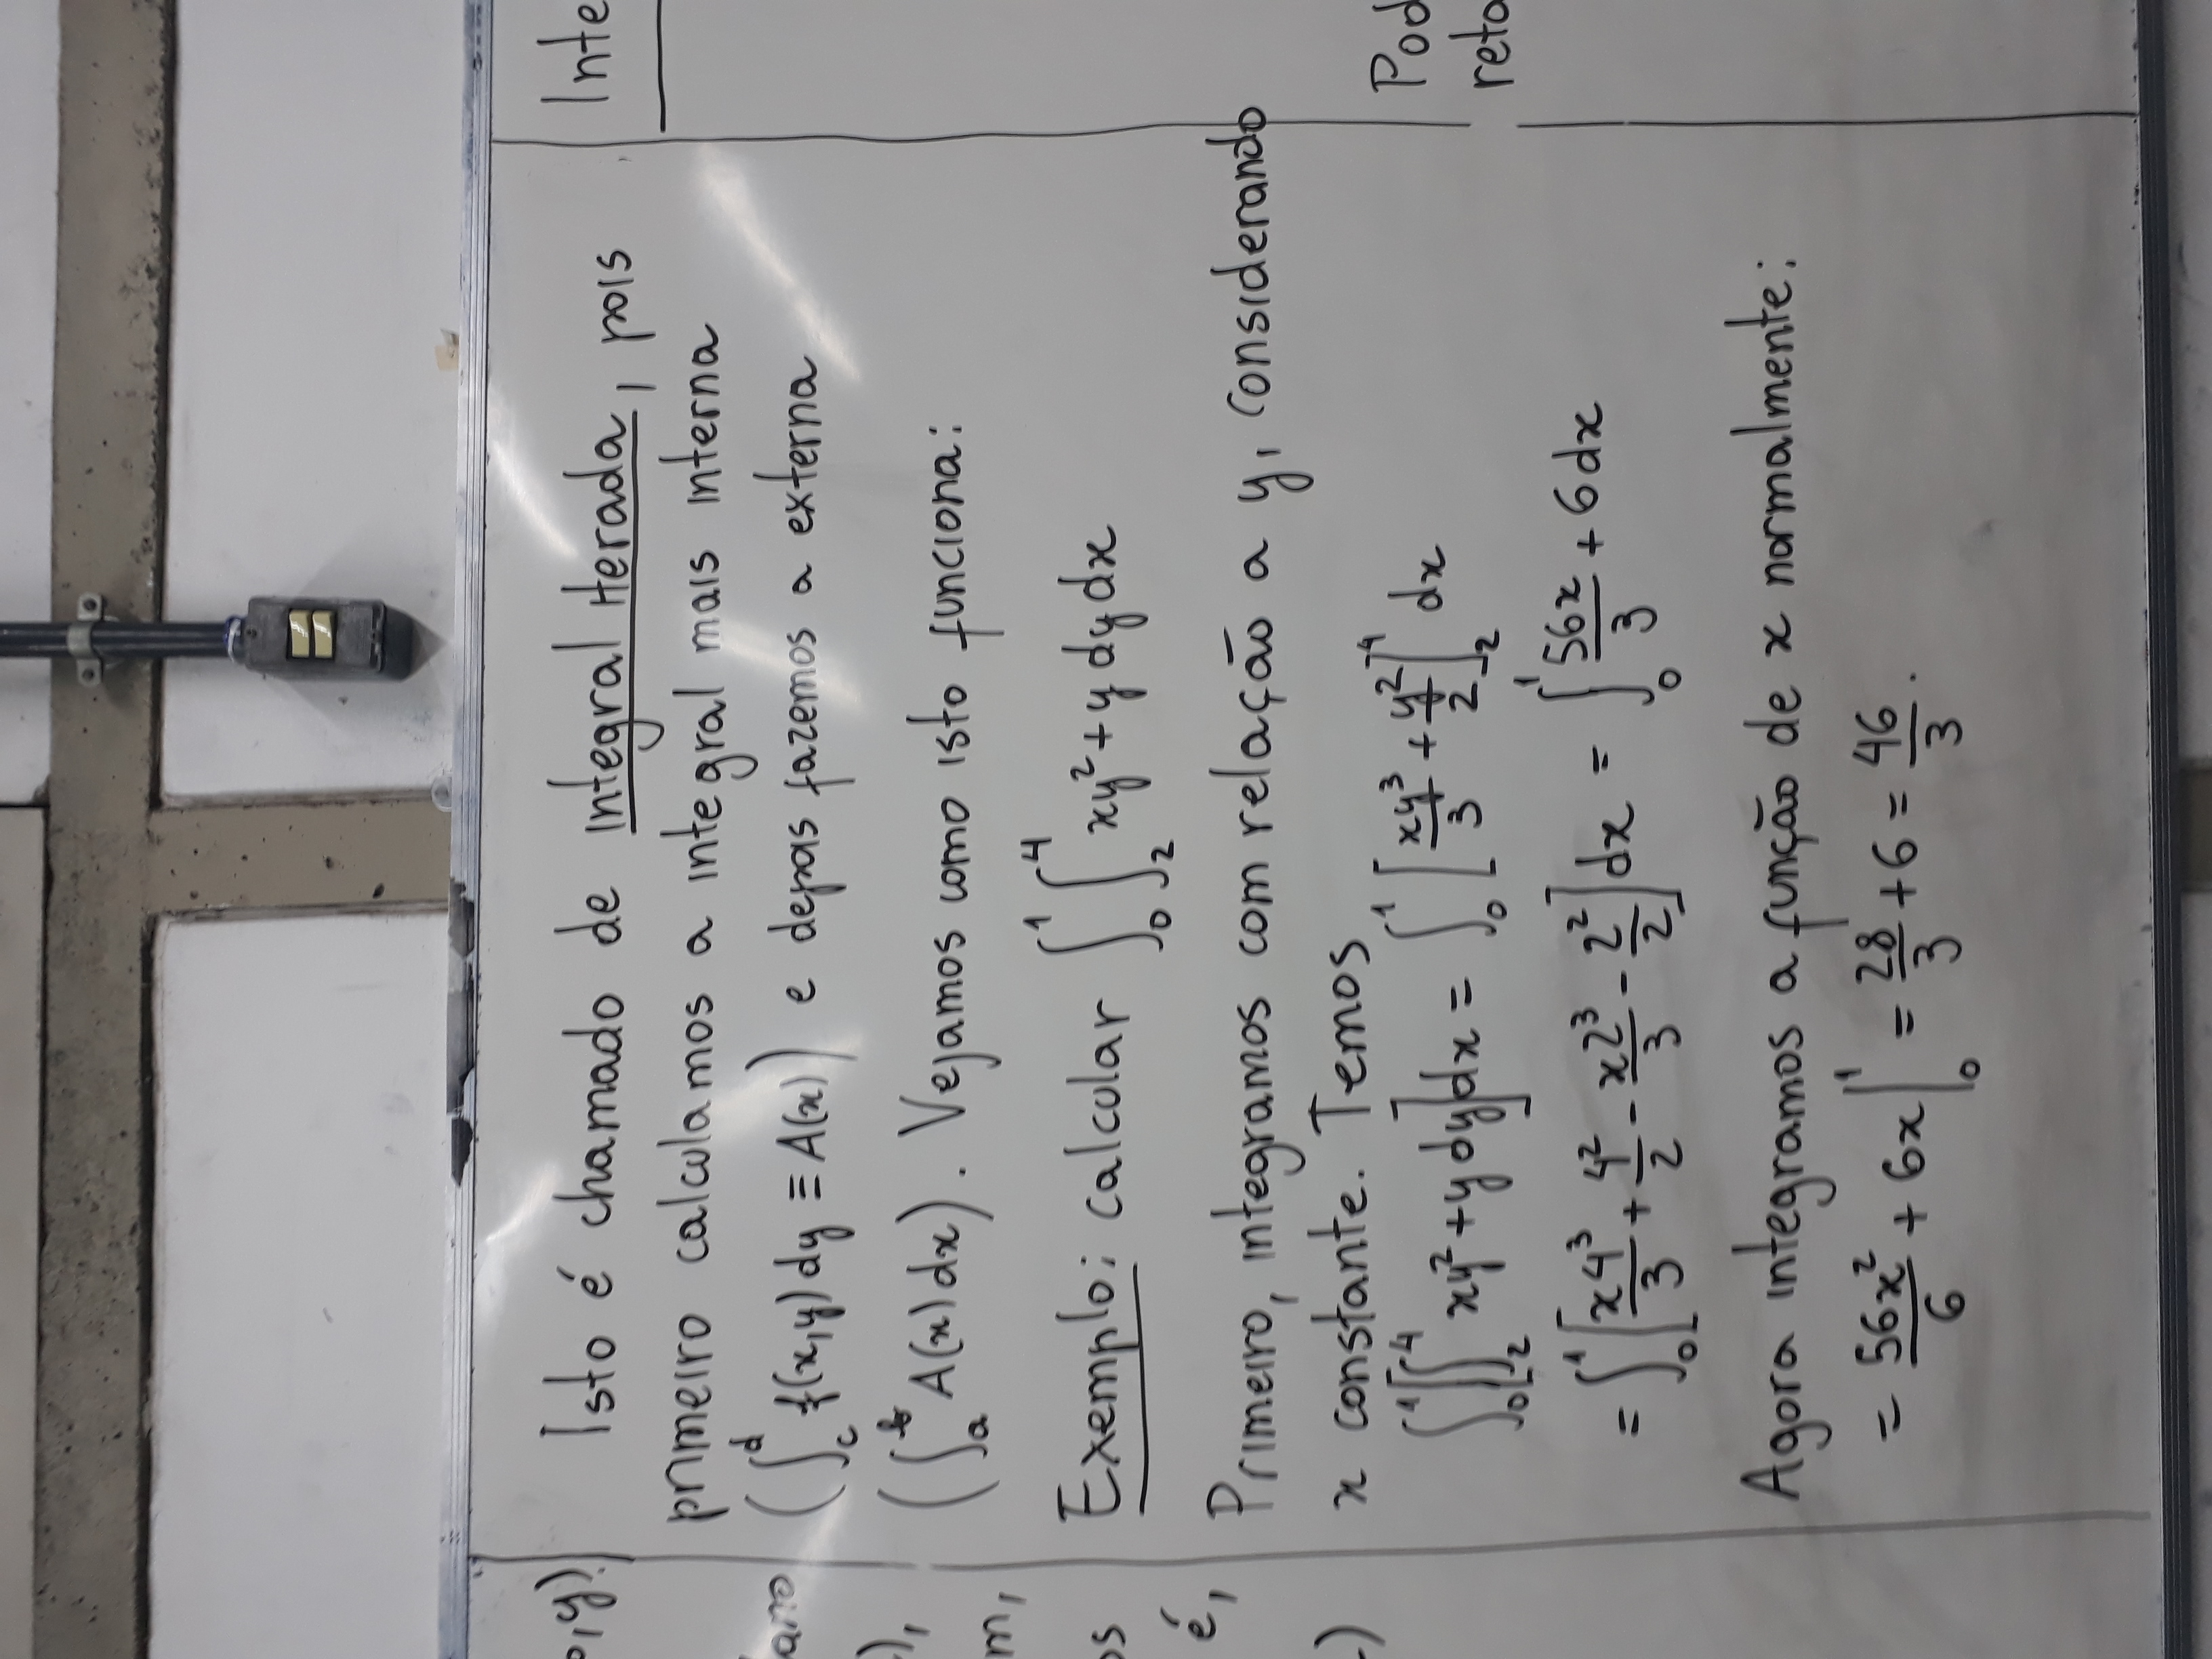 Isto é chamado de integral iterada, pois
primeiro calculamos a integral mais interna
(∫_c^d f(x,y) dy ≡ A(x)) e depois fazemos a externa
(∫_a^b A(x) dx). Vejamos como isto funciona:
Exemplo: calcular ∫_0^1 ∫_2^4 xy² + y dy dx
Primeiro, integramos com relação a y, considerando
x constante. Temos
∫_0^1 [∫_2^4 xy² + y dy] dx = ∫_0^1 [xy³/3 + y²/2]_2^4 dx
= ∫_0^1 [x4³/3 + 4²/2 - x2³/3 - 2²/2] dx = ∫_0^1 56x/3 + 6 dx
Agora integramos a função de x normalmente:
= 56x²/6 + 6x |_0^1 = 28/3 + 6 = 46/3.
,y).
),
m,
é,
)
Inte
Pod
reta